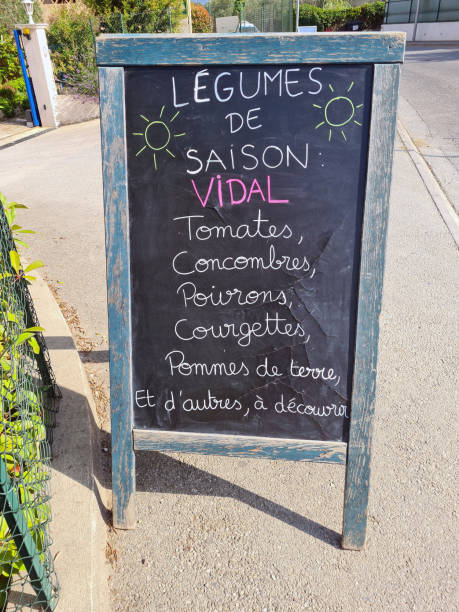 LÉGUMES
DE
SAISON:
VIDAL
Tomates,
Concombres,
Poivrons,
Courgettes,
Pommes de terre,
Et d'autres, à découvrir